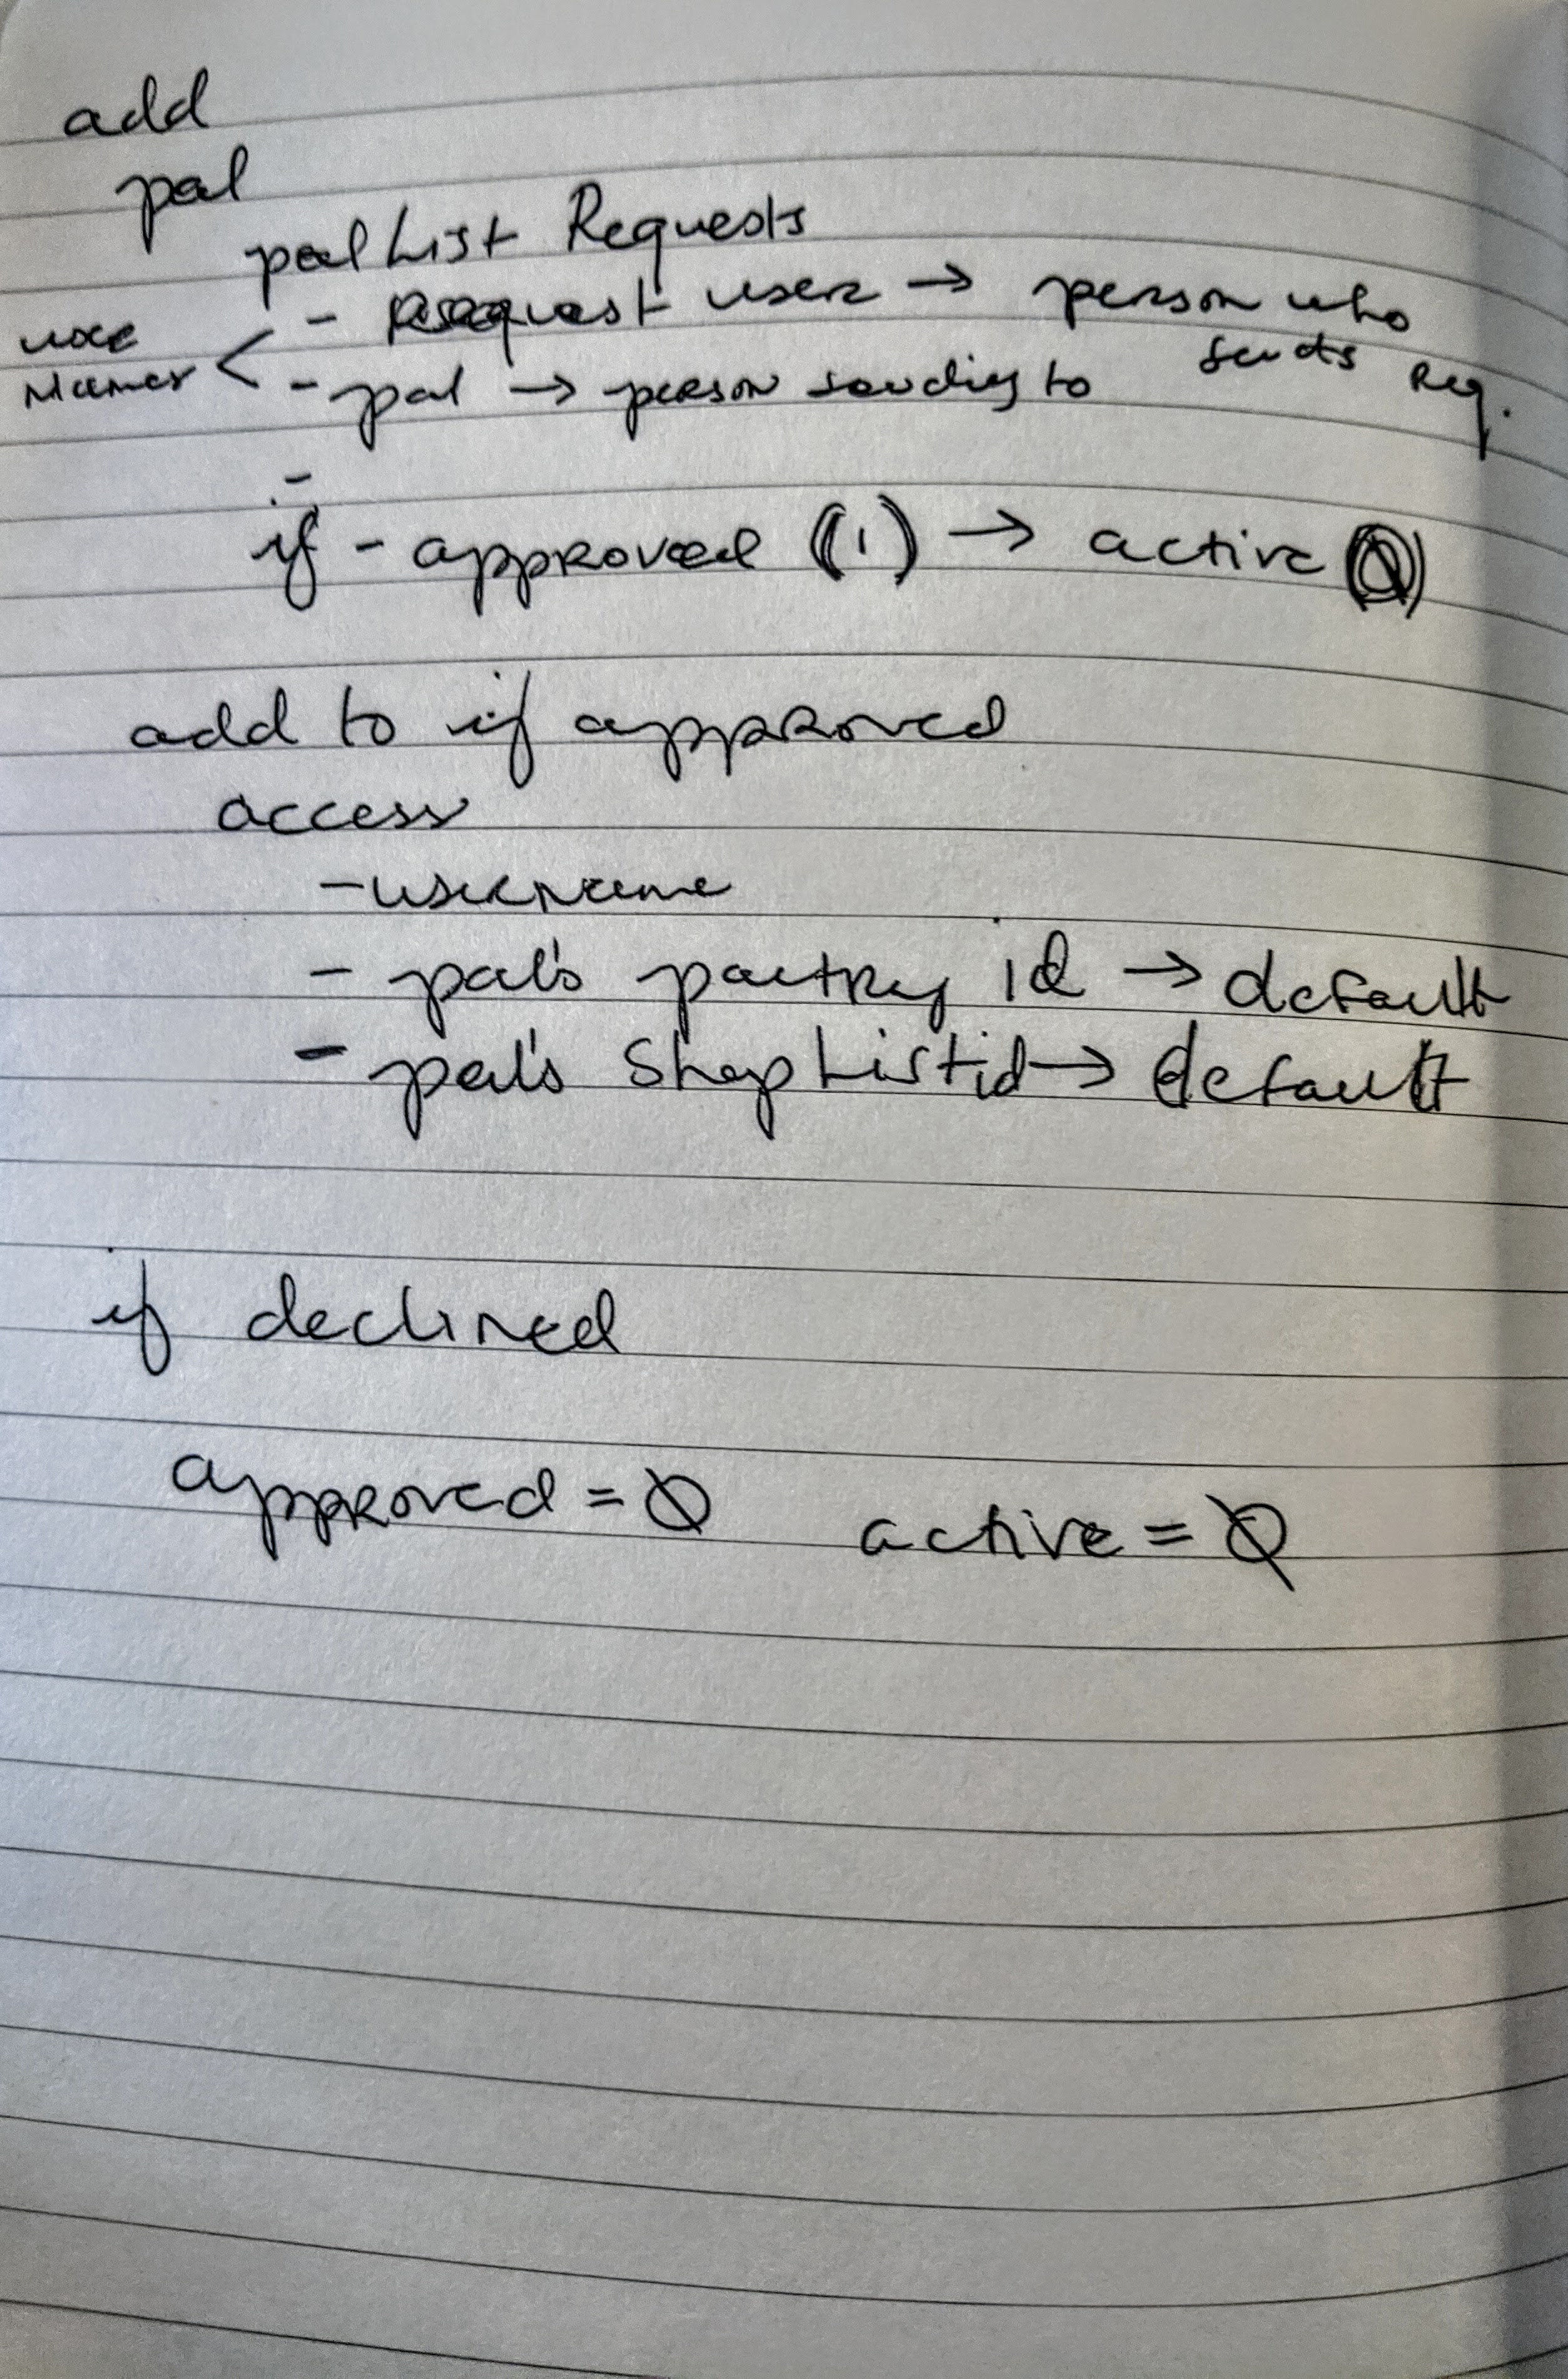 add
pal
palList Requests
user
names < - Request user → person who
sends req.
- pal → person sending to
-
if - approved (1) → active 0
add to if approved
access
- username
- pal's pantry id → default
- pal's ShopListid → default
if declined
approved = 0 active = 0